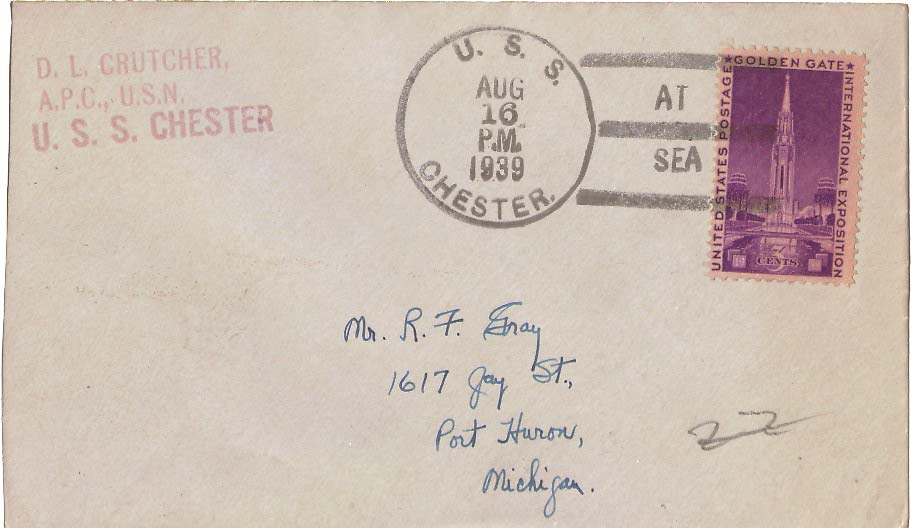 D. L. CRUTCHER,
A.P.C., U.S.N.
U. S. S. CHESTER
U. S. S.
AUG
16
P.M.
1939
CHESTER.
AT
SEA
★GOLDEN GATE★
UNITED STATES POSTAGE
INTERNATIONAL EXPOSITION
19 3 CENTS 39
Mr. R. F. Gray
1617 Jay St.,
Port Huron,
Michigan.
22